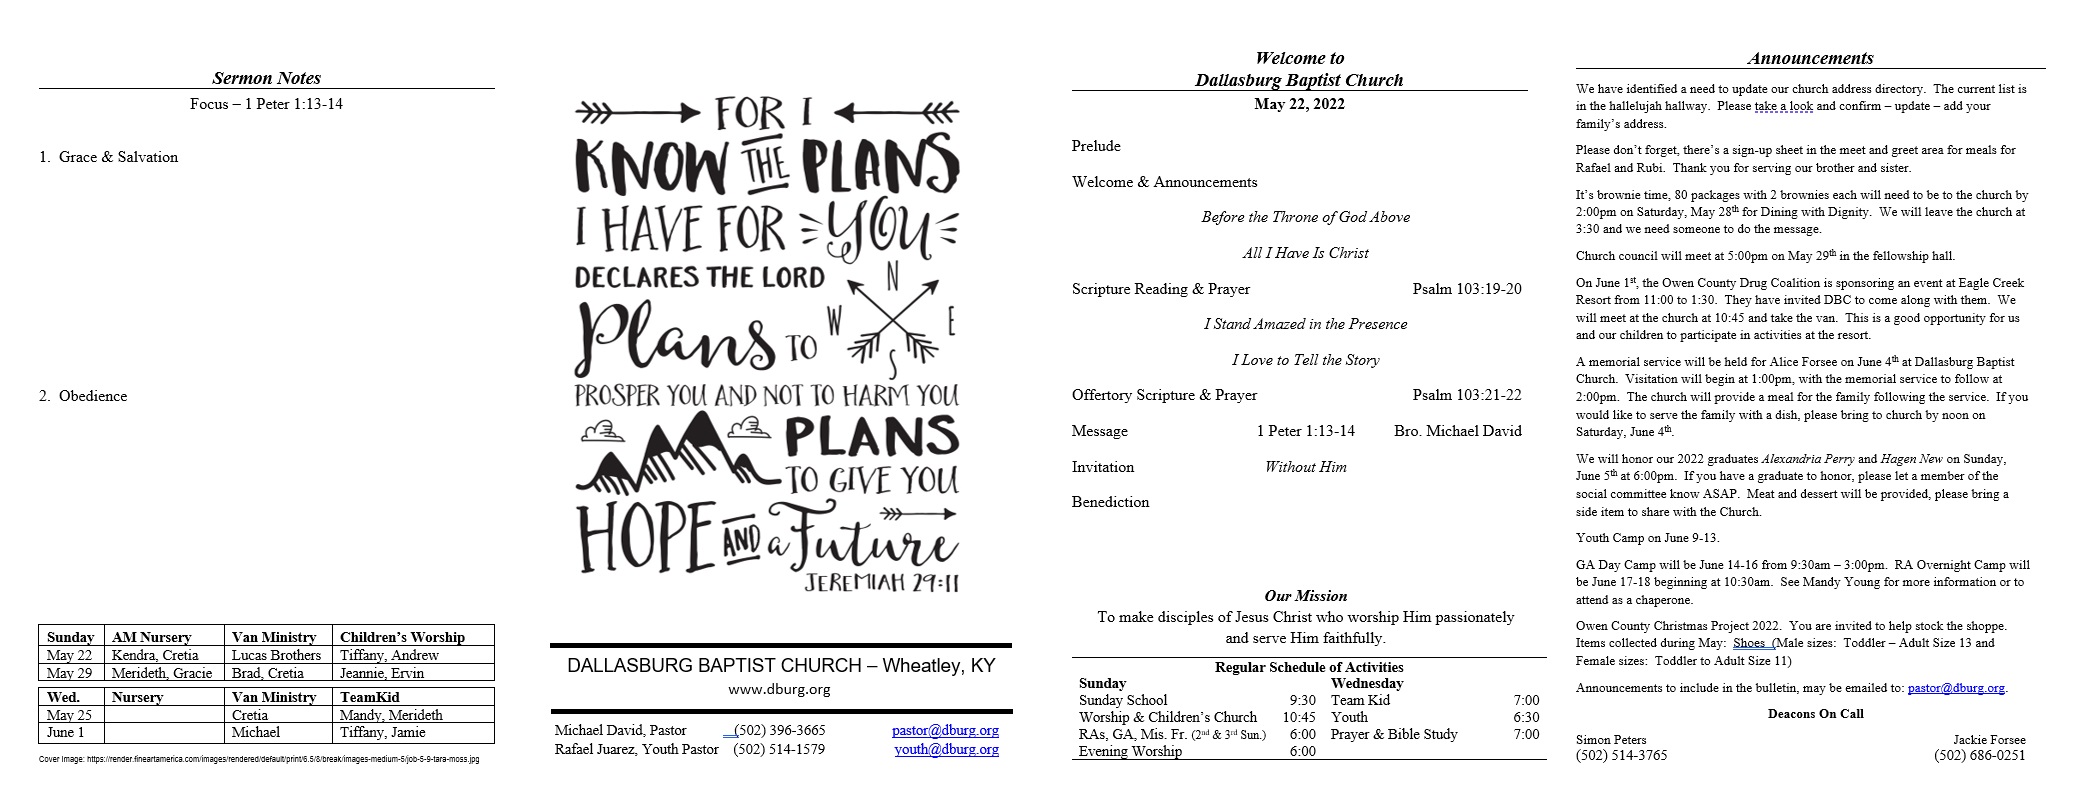 Sermon Notes
Focus – 1 Peter 1:13-14
1. Grace & Salvation
2. Obedience
Sunday AM Nursery Van Ministry Children's Worship
May 22 Kendra, Cretia Lucas Brothers Tiffany, Andrew
May 29 Merideth, Gracie Brad, Cretia Jeannie, Ervin
Wed. Nursery Van Ministry TeamKid
May 25 Cretia Mandy, Merideth
June 1 Michael Tiffany, Jamie
Cover Image: https://render.fineartamerica.com/images/rendered/default/print/6.5/8/break/images-medium-5/job-5-9-tara-moss.jpg
FOR I
KNOW THE PLANS
I HAVE FOR YOU
DECLARES THE LORD
N
Plans TO W E
S
PROSPER YOU AND NOT TO HARM YOU
PLANS
TO GIVE YOU
HOPE AND a Future
JEREMIAH 29:11
DALLASBURG BAPTIST CHURCH – Wheatley, KY
www.dburg.org
Michael David, Pastor (502) 396-3665 pastor@dburg.org
Rafael Juarez, Youth Pastor (502) 514-1579 youth@dburg.org
Welcome to
Dallasburg Baptist Church
May 22, 2022
Prelude
Welcome & Announcements
Before the Throne of God Above
All I Have Is Christ
Scripture Reading & Prayer Psalm 103:19-20
I Stand Amazed in the Presence
I Love to Tell the Story
Offertory Scripture & Prayer Psalm 103:21-22
Message 1 Peter 1:13-14 Bro. Michael David
Invitation Without Him
Benediction
Our Mission
To make disciples of Jesus Christ who worship Him passionately
and serve Him faithfully.
Regular Schedule of Activities
Sunday Wednesday
Sunday School 9:30 Team Kid 7:00
Worship & Children's Church 10:45 Youth 6:30
RAs, GA, Mis. Fr. (2nd & 3rd Sun.) 6:00 Prayer & Bible Study 7:00
Evening Worship 6:00
Announcements
We have identified a need to update our church address directory. The current list is
in the hallelujah hallway. Please take a look and confirm – update – add your
family's address.
Please don't forget, there's a sign-up sheet in the meet and greet area for meals for
Rafael and Rubi. Thank you for serving our brother and sister.
It's brownie time, 80 packages with 2 brownies each will need to be to the church by
2:00pm on Saturday, May 28th for Dining with Dignity. We will leave the church at
3:30 and we need someone to do the message.
Church council will meet at 5:00pm on May 29th in the fellowship hall.
On June 1st, the Owen County Drug Coalition is sponsoring an event at Eagle Creek
Resort from 11:00 to 1:30. They have invited DBC to come along with them. We
will meet at the church at 10:45 and take the van. This is a good opportunity for us
and our children to participate in activities at the resort.
A memorial service will be held for Alice Forsee on June 4th at Dallasburg Baptist
Church. Visitation will begin at 1:00pm, with the memorial service to follow at
2:00pm. The church will provide a meal for the family following the service. If you
would like to serve the family with a dish, please bring to church by noon on
Saturday, June 4th.
We will honor our 2022 graduates Alexandria Perry and Hagen New on Sunday,
June 5th at 6:00pm. If you have a graduate to honor, please let a member of the
social committee know ASAP. Meat and dessert will be provided, please bring a
side item to share with the Church.
Youth Camp on June 9-13.
GA Day Camp will be June 14-16 from 9:30am – 3:00pm. RA Overnight Camp will
be June 17-18 beginning at 10:30am. See Mandy Young for more information or to
attend as a chaperone.
Owen County Christmas Project 2022. You are invited to help stock the shoppe.
Items collected during May: Shoes (Male sizes: Toddler – Adult Size 13 and
Female sizes: Toddler to Adult Size 11)
Announcements to include in the bulletin, may be emailed to: pastor@dburg.org.
Deacons On Call
Simon Peters Jackie Forsee
(502) 514-3765 (502) 686-0251